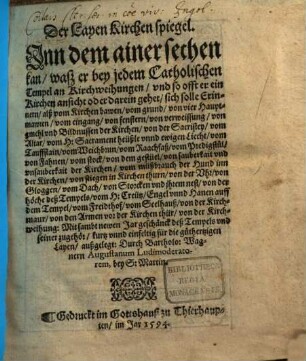 Der Layen Kirchen spiegel.
Inn dem ainer sechen
kan, waß er bey jedem Catholischen
Tempel an Kirchweihungen, vnd so offt er ein
Kirchen ansicht oder darein gehet, sich solle Erin-
nern, auß vom Kirchen bawen, vom grund, von vier Haupt-
mauren, vom eingang, von fenstern, von verweissung, von
gmehl vnd Bildnussen der Kirchen, von der Sacristey, vom
Altar, vom H: Sacrament heüßle vnnd ewigen Liecht, vom
Tauffstain, vom Weichbrun, vom Raachfaß, vom Predigstůl,
von Fahnen, vom stock, von dem gestüel, von sauberkait vnd
vnsauberkait der Kirchen, vom mißbrauch der Hund inn
der Kirchen, von stiegen im Kirchen thurn, von der Vhr, von
der Gloggen, vom Dach, von Storcken vnd jhrem nest, von der
höche deß Tempels, vom H: Creitz, Engel vnnd Hanen auff
dem Tempel, vom Freidthof, vom Seelhauß, von der Kirch-
mauren, von den Armen vor der Kirchen thür, von der Kirch-
weihung: Mit sambt newen Jar geschänck deß Tempels vnd
seiner zugehör, kurtz vnnd einfeltig für die gůthertzigen
Layen, außgelegt: Durch Bartholo: Wag-
nern Augustanum Ludimoderato-
rem, bey S: Martin.
BIBLIOTHECA
REGIA
MONACENSIS
Gedruckt im Gottshauß zu Thierhaup-
ten, im Jar 1594.